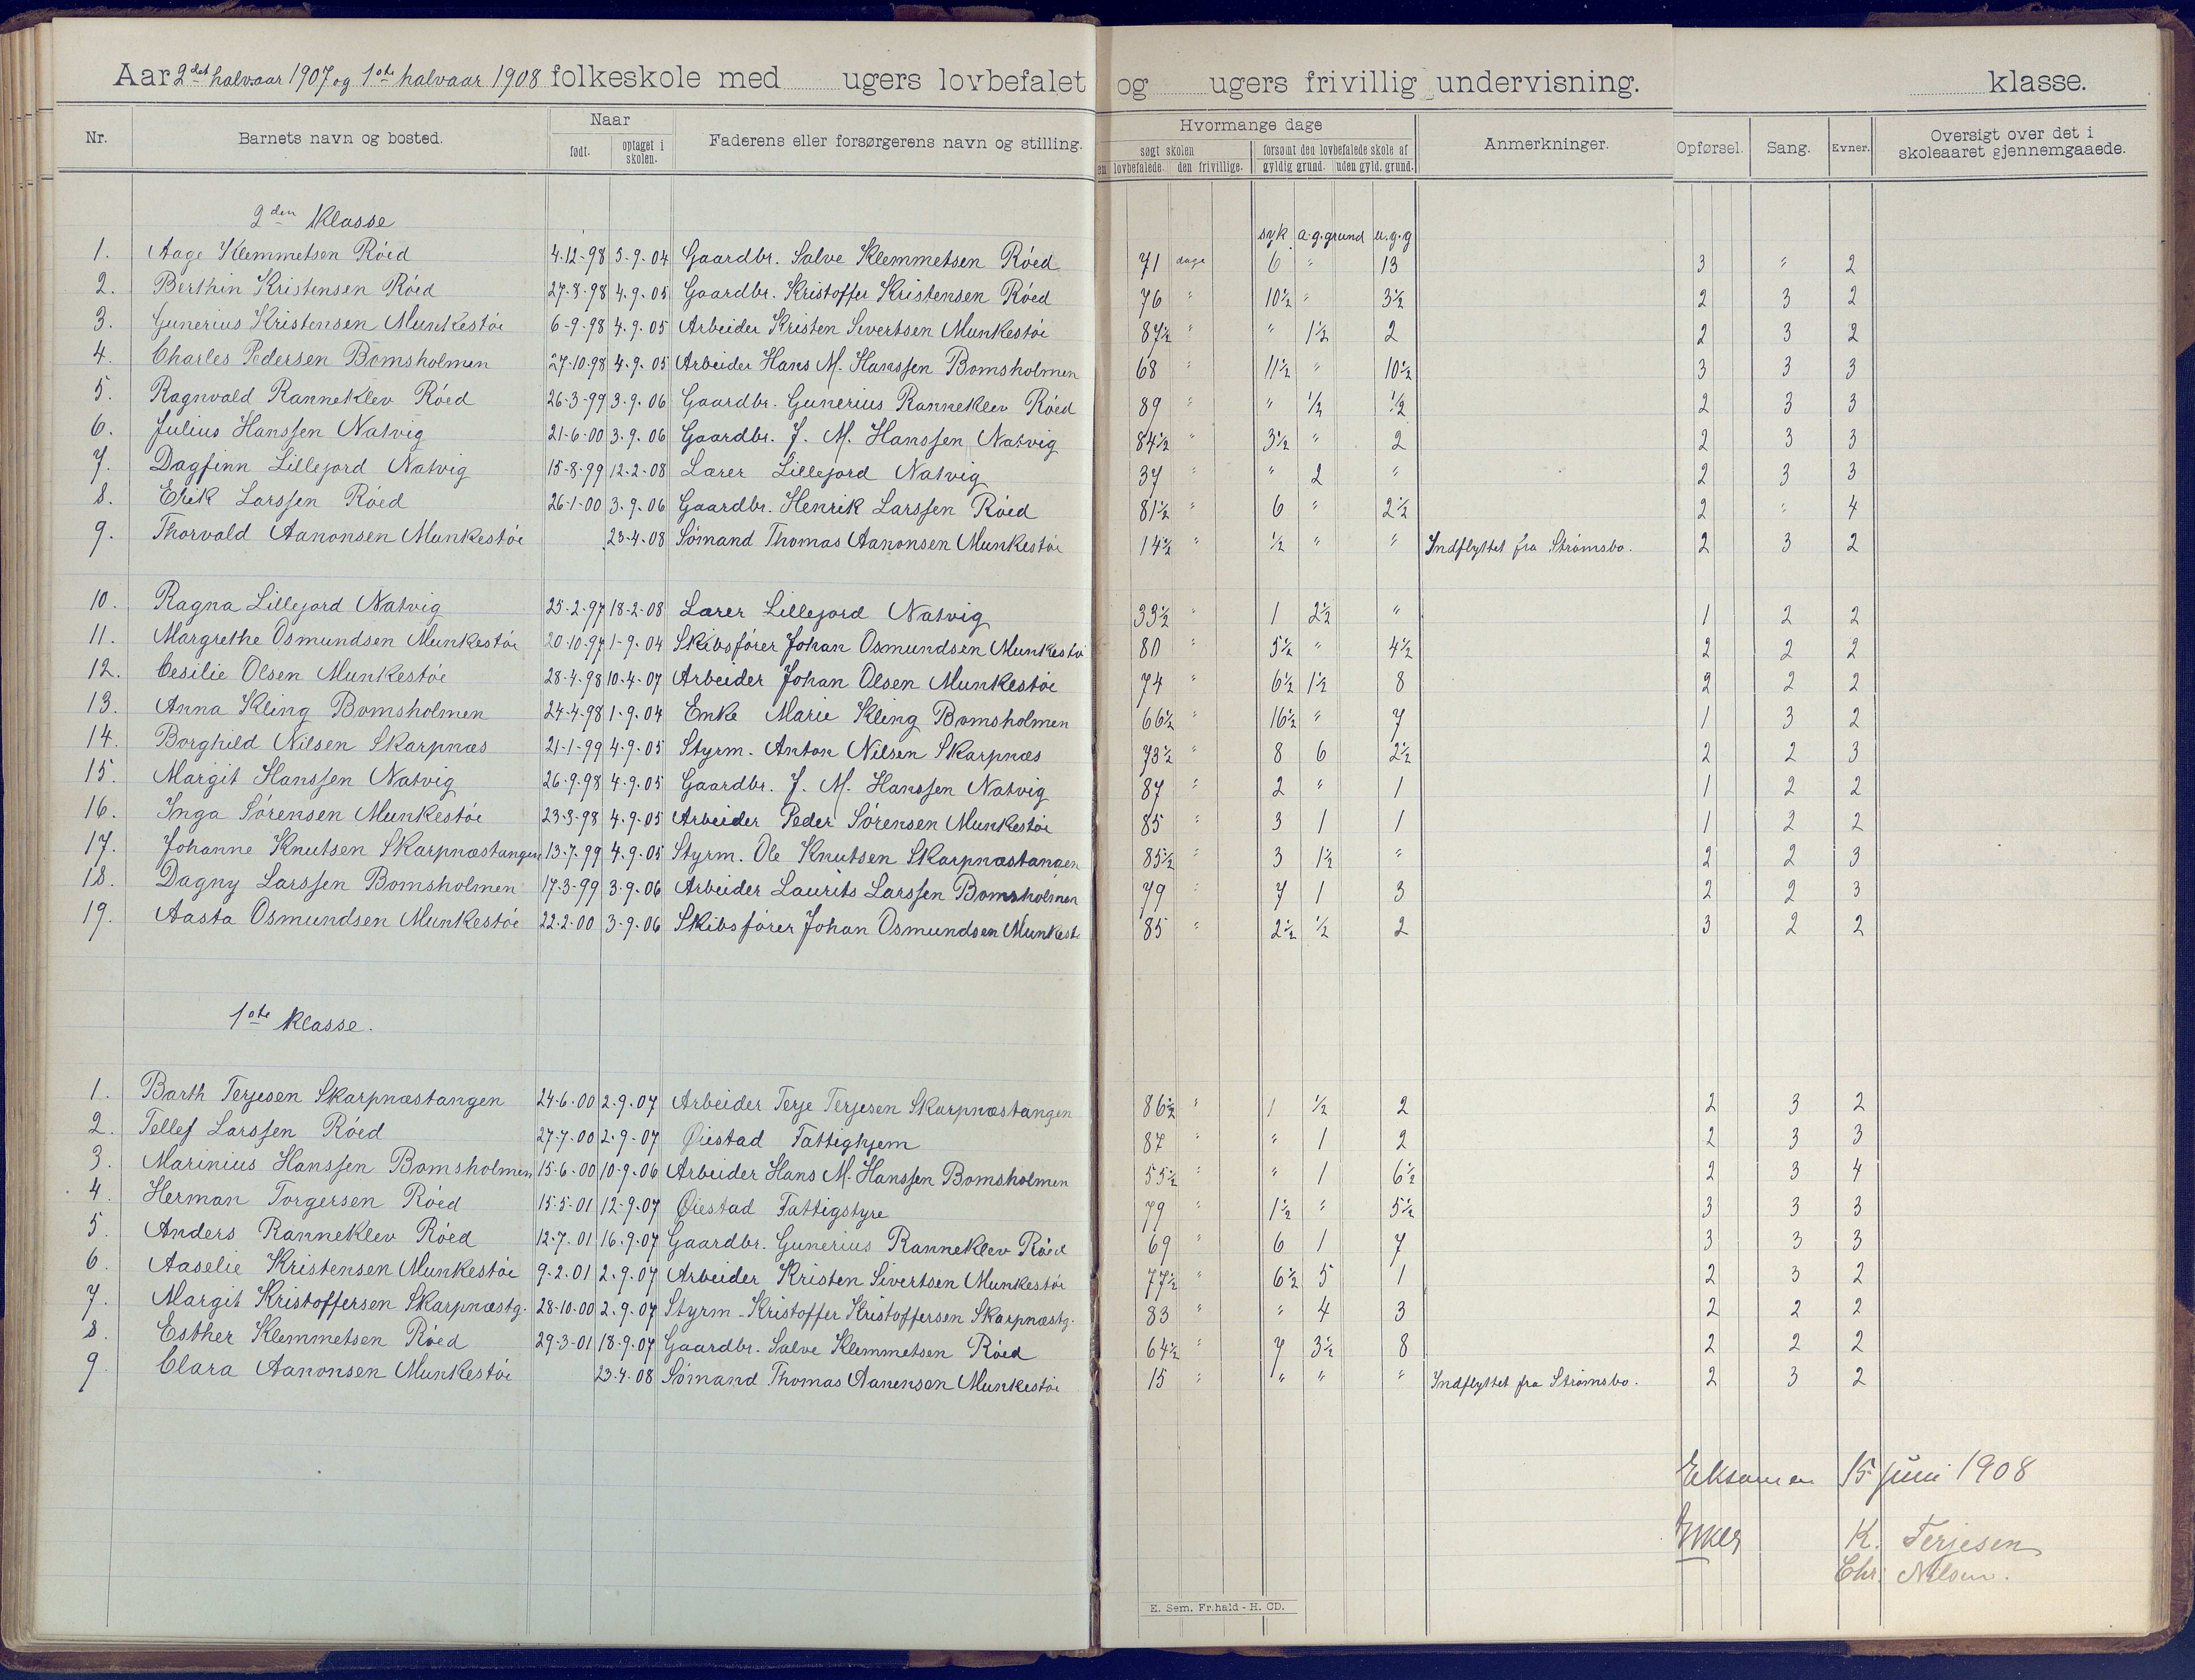 Aar 2det halvaar 1907 og 1ste halvaar 1908 folkeskole med ugers lovbefalet og ugers frivillig undervisning. klasse.
Nr. Barnets navn og bosted. Naar født. optaget i skolen. Faderens eller forsørgerens navn og stilling. Hvormange dage søgt skolen den lovbefalede. den frivillige. forsømt den lovbefalede skole af gyldig grund. uden gyld. grund. Anmerkninger. Opførsel. Sang. Evner. Oversigt over det i skoleaaret gjennemgaaede.
2den Klasse
syk a.g.grund u.g.g
1. Aage Klemmetsen Röed 4-12-98 5-9-04 Gaardbr. Salve Klemmetsen Röed 71 dage 6 " 13 3 " 2
2. Berthin Kristensen Röed 27-8-98 4-9-05 Gaardbr. Kristoffer Kristensen Röed 76 " 10½ " 3½ 2 3 2
3. Gunerius Kristensen Munkestöe 6-9-98 4-9-05 Arbeider Kristen Sivertsen Munkestöe 87½ " " 1½ 2 2 3 2
4. Charles Pedersen Bomsholmen 27-10-98 4-9-05 Arbeider Hans M. Hanssen Bomsholmen 68 " 11½ " 10½ 3 3 3
5. Ragnvald Ranneklev Röed 26-3-99 3-9-06 Gaardbr. Gunerius Ranneklev Röed 89 " " ½ ½ 2 3 3
6. Julius Hanssen Natvig 21-6-00 3-9-06 Gaardbr. J. M. Hanssen Natvig 84½ " 3½ " 2 2 3 3
7. Dagfinn Lillejord Natvig 15-8-99 12-2-08 Lærer Lillejord Natvig 37 " " 2 " 2 3 3
8. Erik Larssen Röed 26-1-00 3-9-06 Gaardbr. Henrik Larssen Röed 81½ " 6 " 2½ 2 " 4
9. Thorvald Aanonsen Munkestöe 23-4-08 Sömand Thomas Aanonsen Munkestöe 14½ " ½ " " Indflyttet fra Strömsbo. 2 3 2
10. Ragna Lillejord Natvig 25-2-97 18-2-08 Lærer Lillejord Natvig 33½ " 1 2½ " 1 2 2
11. Margrethe Osmundsen Munkestöe 20-10-97 1-9-04 Skibsförer Johan Osmundsen Munkestö 80 " 5½ " 4½ 2 2 2
12. Cesilie Olsen Munkestöe 28-4-98 10-4-07 Arbeider Johan Olsen Munkestöe 74 " 6½ 1½ 8 2 2 2
13. Anna Kling Bomsholmen 24-4-98 1-9-04 Enke Marie Kling Bomsholmen 66½ " 16½ " 7 1 3 2
14. Borghild Nilsen Skarpnæs 21-1-99 4-9-05 Styrm. Anton Nilsen Skarpnæs 73½ " 8 6 2½ 2 2 3
15. Margit Hanssen Natvig 26-9-98 4-9-05 Gaardbr. J. M. Hanssen Natvig 87 " 2 " 1 1 2 2
16. Inga Sörensen Munkestöe 23-8-98 4-9-05 Arbeider Peder Sörensen Munkestöe 85 " 3 1 1 1 2 2
17. Johanne Knutsen Skarpnæstangen 13-7-99 4-9-05 Styrm. Ole Knutsen Skarpnæstangen 85½ " 3 1½ " 2 2 3
18. Dagny Larssen Bomsholmen 17-3-99 3-9-06 Arbeider Laurits Larssen Bomsholmen 79 " 7 1 3 2 2 3
19. Aasta Osmundsen Munkestöe 22-2-00 3-9-06 Skibsförer Johan Osmundsen Munkest 85 " 2½ ½ 2 3 2 2
1ste Klasse.
1. Barth Terjesen Skarpnæstangen 24-6-00 2-9-07 Arbeider Terje Terjesen Skarpnæstangen 86½ " 1 ½ 2 2 3 2
2. Tellef Larssen Röed 27-7-00 2-9-07 Øiestad Fattighjem 87 " " 1 2 2 3 3
3. Marinius Hanssen Bomsholmen 15-6-00 10-9-06 Arbeider Hans M. Hanssen Bomsholmen 55½ " " 1 6½ 2 3 4
4. Herman Torgersen Röed 15-5-01 12-9-07 Øiestad Fattigstyre 79 " 1½ " 5½ 3 3 3
5. Anders Ranneklev Röed 12-7-01 16-9-07 Gaardbr. Gunerius Ranneklev Röed 69 " 6 1 7 3 3 3
6. Aaselie Kristensen Munkestöe 9-2-01 2-9-07 Arbeider Kristen Sivertsen Munkestöe 77½ " 6½ 5 1 2 3 2
7. Margit Kristoffersen Skarpnæstg. 28-10-00 2-9-07 Styrm. Kristoffer Kristoffersen Skarpnæstg. 83 " " 4 3 2 2 2
8. Esther Klemmetsen Röed 29-3-01 18-9-07 Gaardbr. Salve Klemmetsen Röed 64½ " 7 3½ 8 2 2 2
9. Clara Aanonsen Munkestöe 23-4-08 Sömand Thomas Aanensen Munkestöe 15 " " " " Indflyttet fra Strömsbo. 2 3 2
Eksamen 15 juni 1908
K. Terjesen
Chr. Nilsen.
E. Sem. Fr.hald - H. CD.